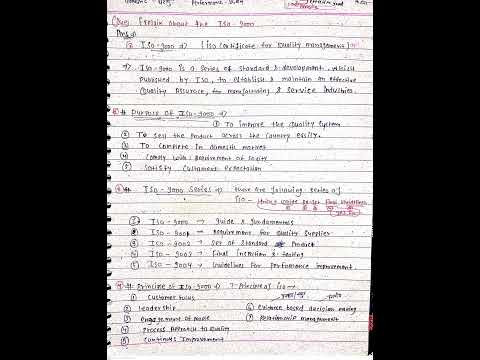 Que) Explain about the ISO-9000
Ans →
① ISO-9000 ⇒ [ISO Certificate for Quality management]
→ ISO-9000 is a series of standard & development which
Published by ISO, to establish & maintain an effective
Quality Assurace, for manufacturing & Service Industries.
# Purpose of ISO-9000 ⇒
① To improve the Quality System
② To sell the Product across the country easily.
③ To complete in domestic market
④ Comply with Requirement of Society
⑤ Satisfy Customers
# ISO-9000 Series ⇒ there are following series of
ISO -
① ISO-9000 → guide & fundamentals
② ISO-9001 → Requirement for Quality Supplier
③ ISO-9002 → Set of Standard Product
④ ISO-9003 → Final inspection & testing
⑤ ISO-9004 → Guidelines for Performance improvement.
# Principle of ISO-9000 ⇒ 7-Principle of ISO →
① Customer focus
② leadership
③ engagement of people
④ Process Approach to Quality
⑤ Continuous Improvement
⑥ Evidence based decision making
⑦ Relationship management